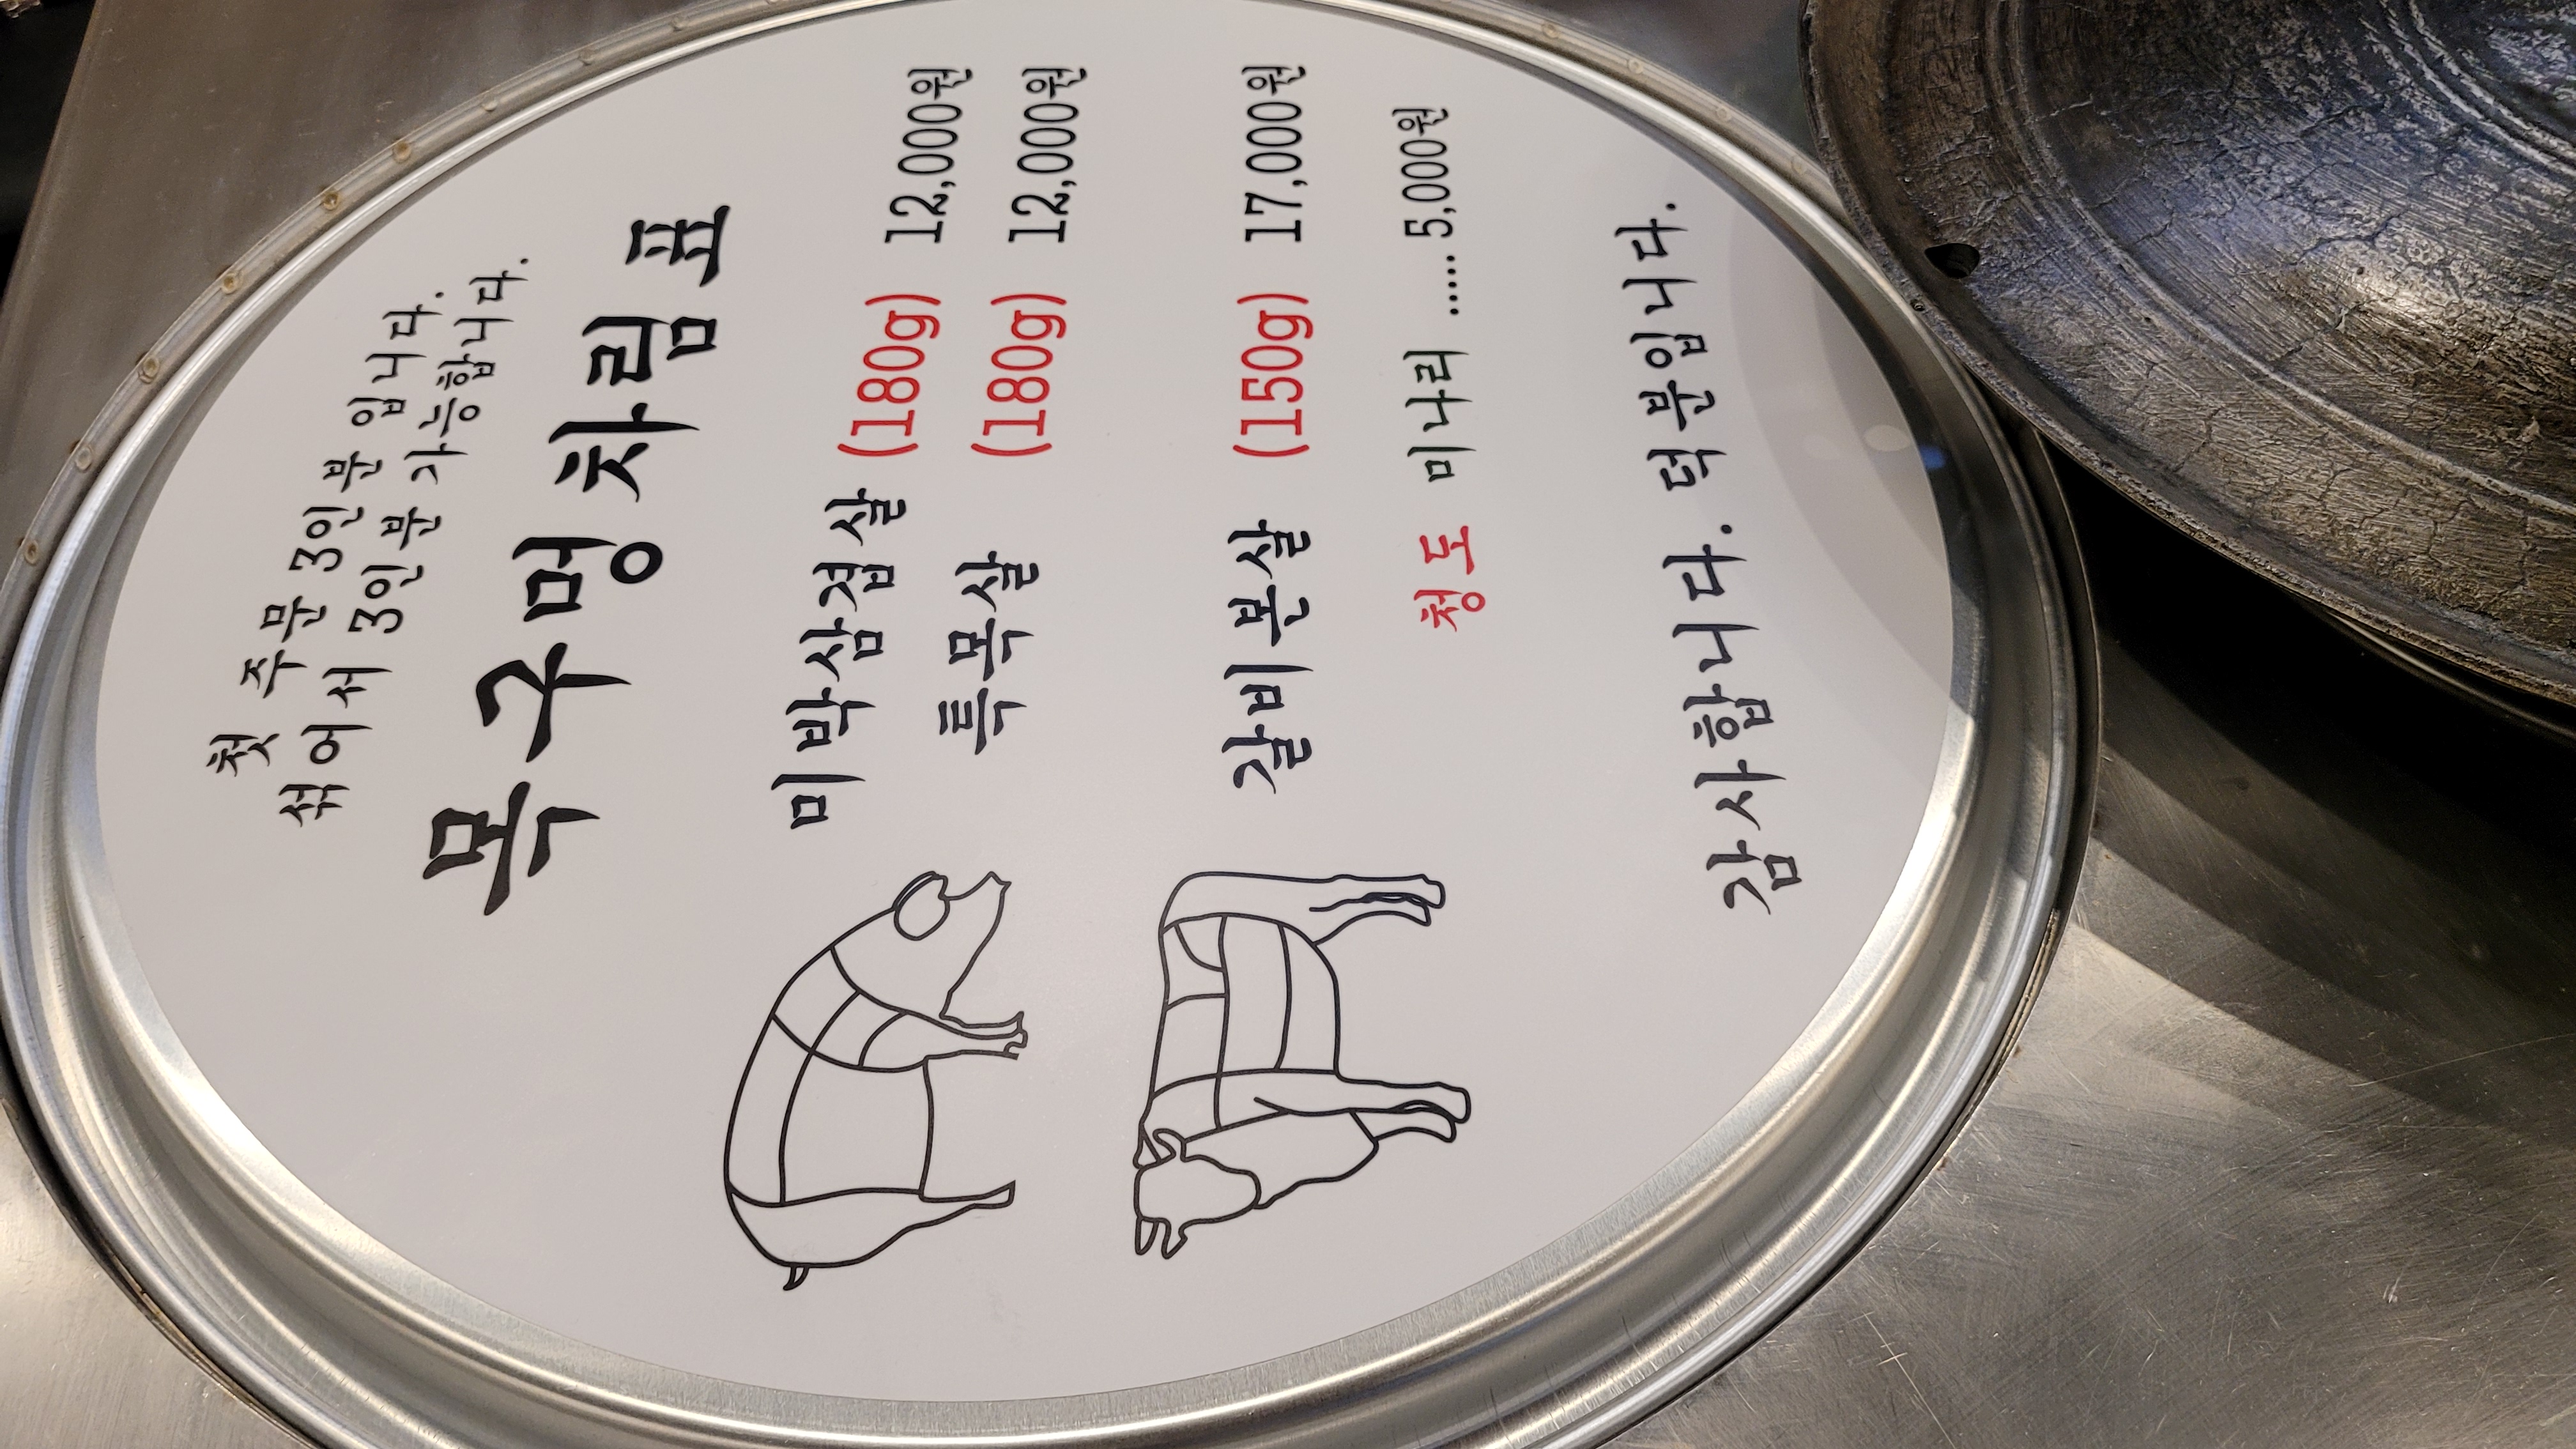 첫 주문 3인 분 입니다.
섞어서 3인분 가능합니다.
목구멍차림표
미박삼겹살 (180g) 12,000원
특목살 (180g) 12,000원
갈비본살 (150g) 17,000원
청도 미나리 ...... 5,000원
감사합니다. 덕분입니다.